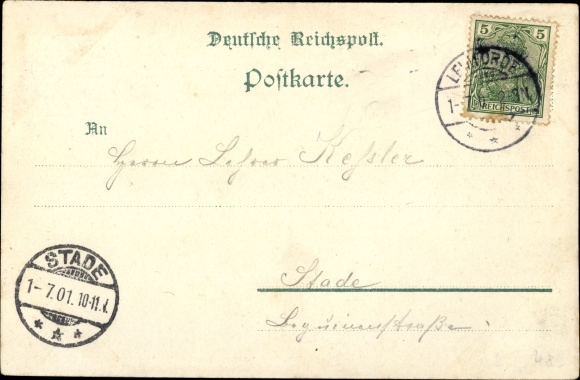 Deutsche Reichspost.
Postkarte.
5 5
REICHSPOST
1-7
An
Herrn Lehrer Kessler
Stade
STADE
1-7.01. 10-11.V.
48